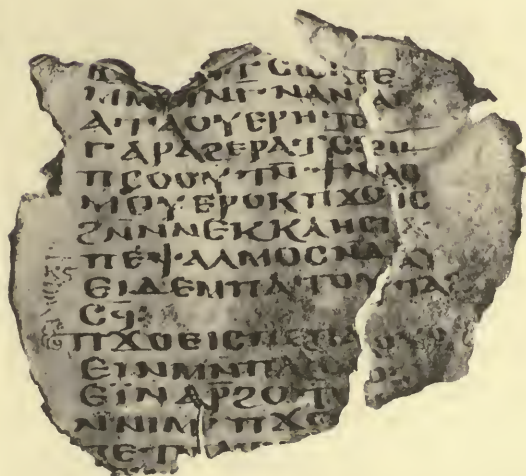 ⲅⲥⲱⲧⲉ
ⲙⲙⲟⲓⲛⲅⲛⲁⲛⲁⲓ
ⲁⲧⲁⲟⲩⲉⲣⲏⲧⲉ
ⲅⲁⲣⲁϩⲉⲣⲁⲧⲥϩⲙ
ⲡⲥⲟⲟⲩⲧⲛ̄·ϯⲛⲁⲥ
ⲙⲟⲩⲉⲣⲟⲕⲡϫⲟⲓⲥ
ϩⲛ̄ⲛⲉⲕⲕⲗⲏⲥⲓⲁ
ⲡⲉⲯⲁⲗⲙⲟⲥⲛⲇⲁⲩ
ⲉⲓⲇⲉⲙⲡⲁⲧⲟⲩⲧⲁϩ
ⲥϥ̄:
ⲡϫⲟⲉⲓⲥⲡⲉⲡⲁⲟⲩⲟ
ⲉⲓⲛⲙⲛⲡⲁⲟⲩ
ⲉⲓⲛⲁⲣ̄ϩⲟⲧⲉ
ⲛⲛⲓⲙ·ⲡϫⲟ
ⲡⲉ